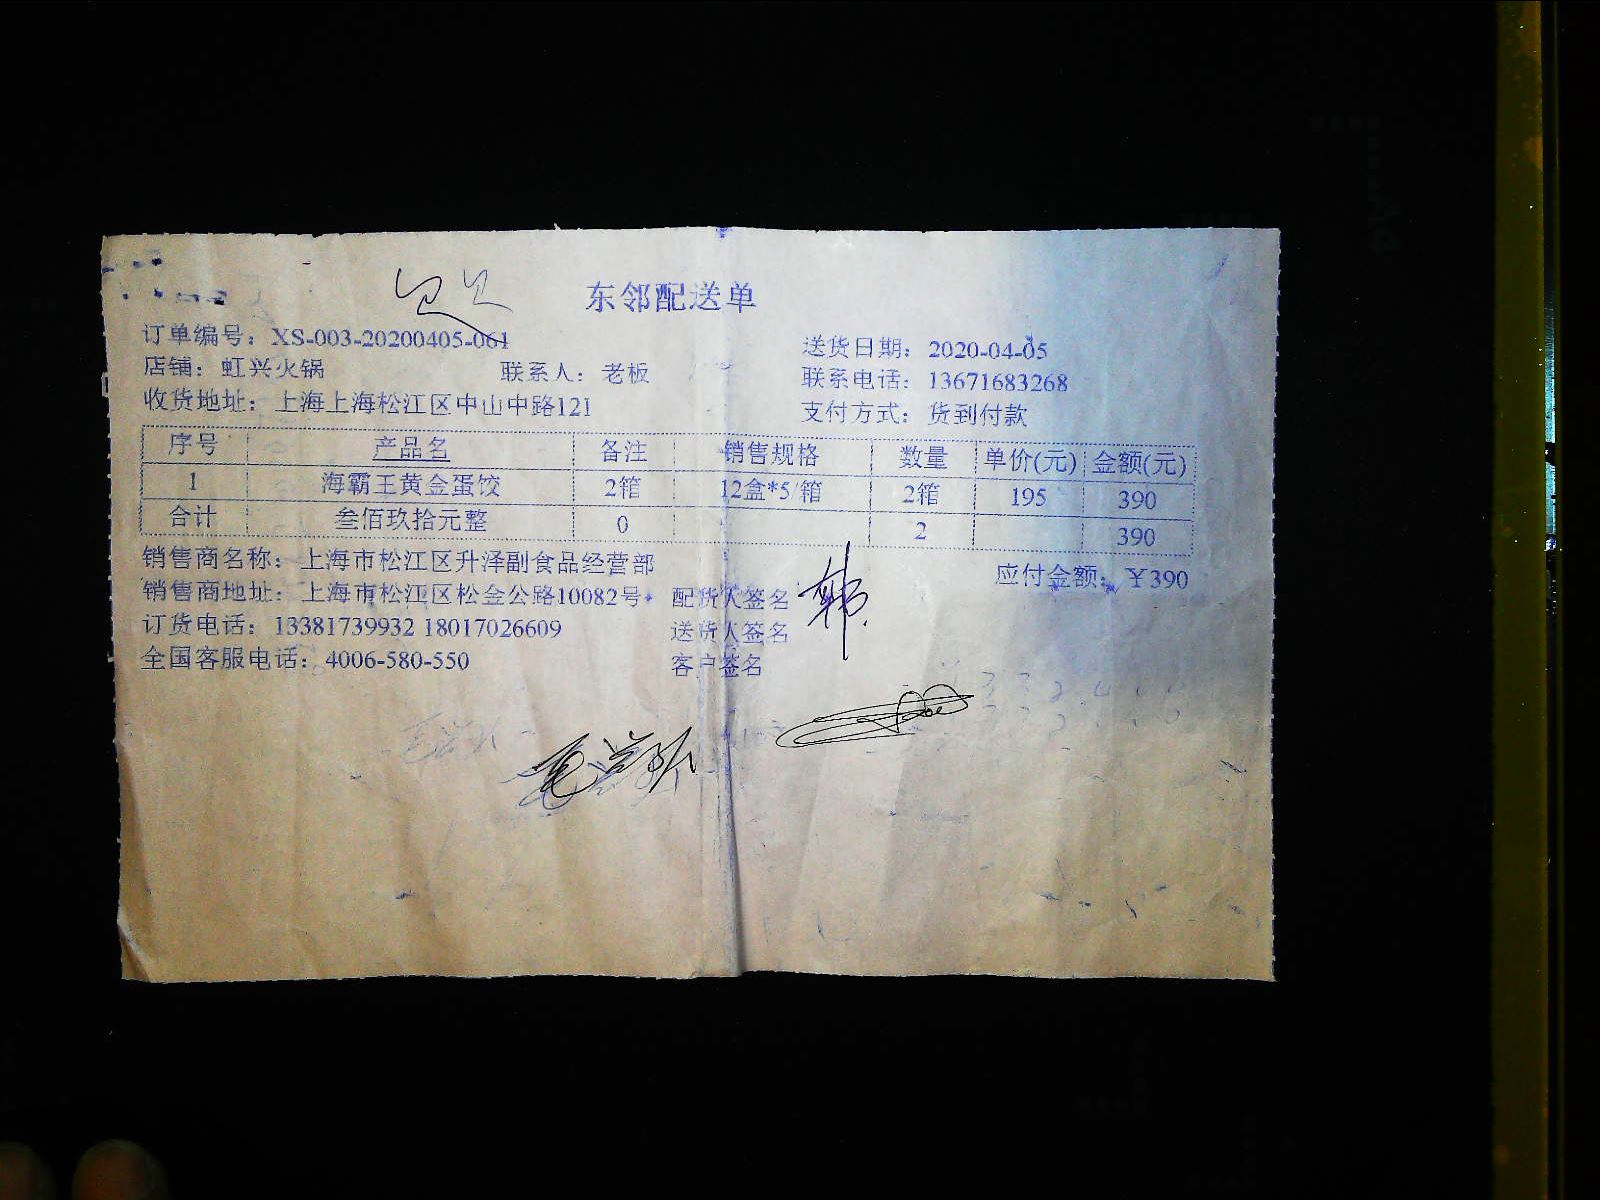 东邻配送单
订单编号：XS-003-20200405-061
送货日期：2020-04-05
店铺：虹兴火锅 联系人：老板 联系电话：13671683268
收货地址：上海上海松江区中山中路121 支付方式：货到付款
序号 产品名 备注 销售规格 数量 单价(元) 金额(元)
1 海霸王黄金蛋饺 2箱 12盒*5/箱 2箱 195 390
合计 叁佰玖拾元整 0 2 390
销售商名称：上海市松江区升泽副食品经营部 应付金额：￥390
销售商地址：上海市松江区松金公路10082号 配货人签名 韩
订货电话：13381739932 18017026609 送货人签名
全国客服电话：4006-580-550 客户签名